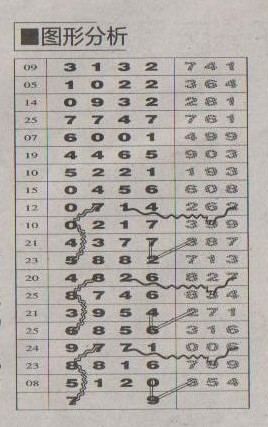 ■图形分析
09 3 1 3 2 7 4 1
05 1 0 2 2 3 6 4
14 0 9 3 2 2 8 1
25 7 7 4 7 7 6 1
07 6 0 0 1 4 9 9
19 4 4 6 5 9 0 3
10 5 2 2 1 1 9 3
15 0 4 5 6 6 0 8
12 0 7 1 4 2 6 2
10 0 2 1 7 3 9
21 4 3 7 7 3 8 7
23 5 8 8 2 7 1 3
20 4 8 2 6 8 2 7
25 8 7 4 6 8 4
21 3 9 5 4 2 7 1
25 6 8 5 6 3 1 6
24 9 7 7 1 0 0
23 8 8 1 6 7 9
08 5 1 2 0 3 5 4
7 9